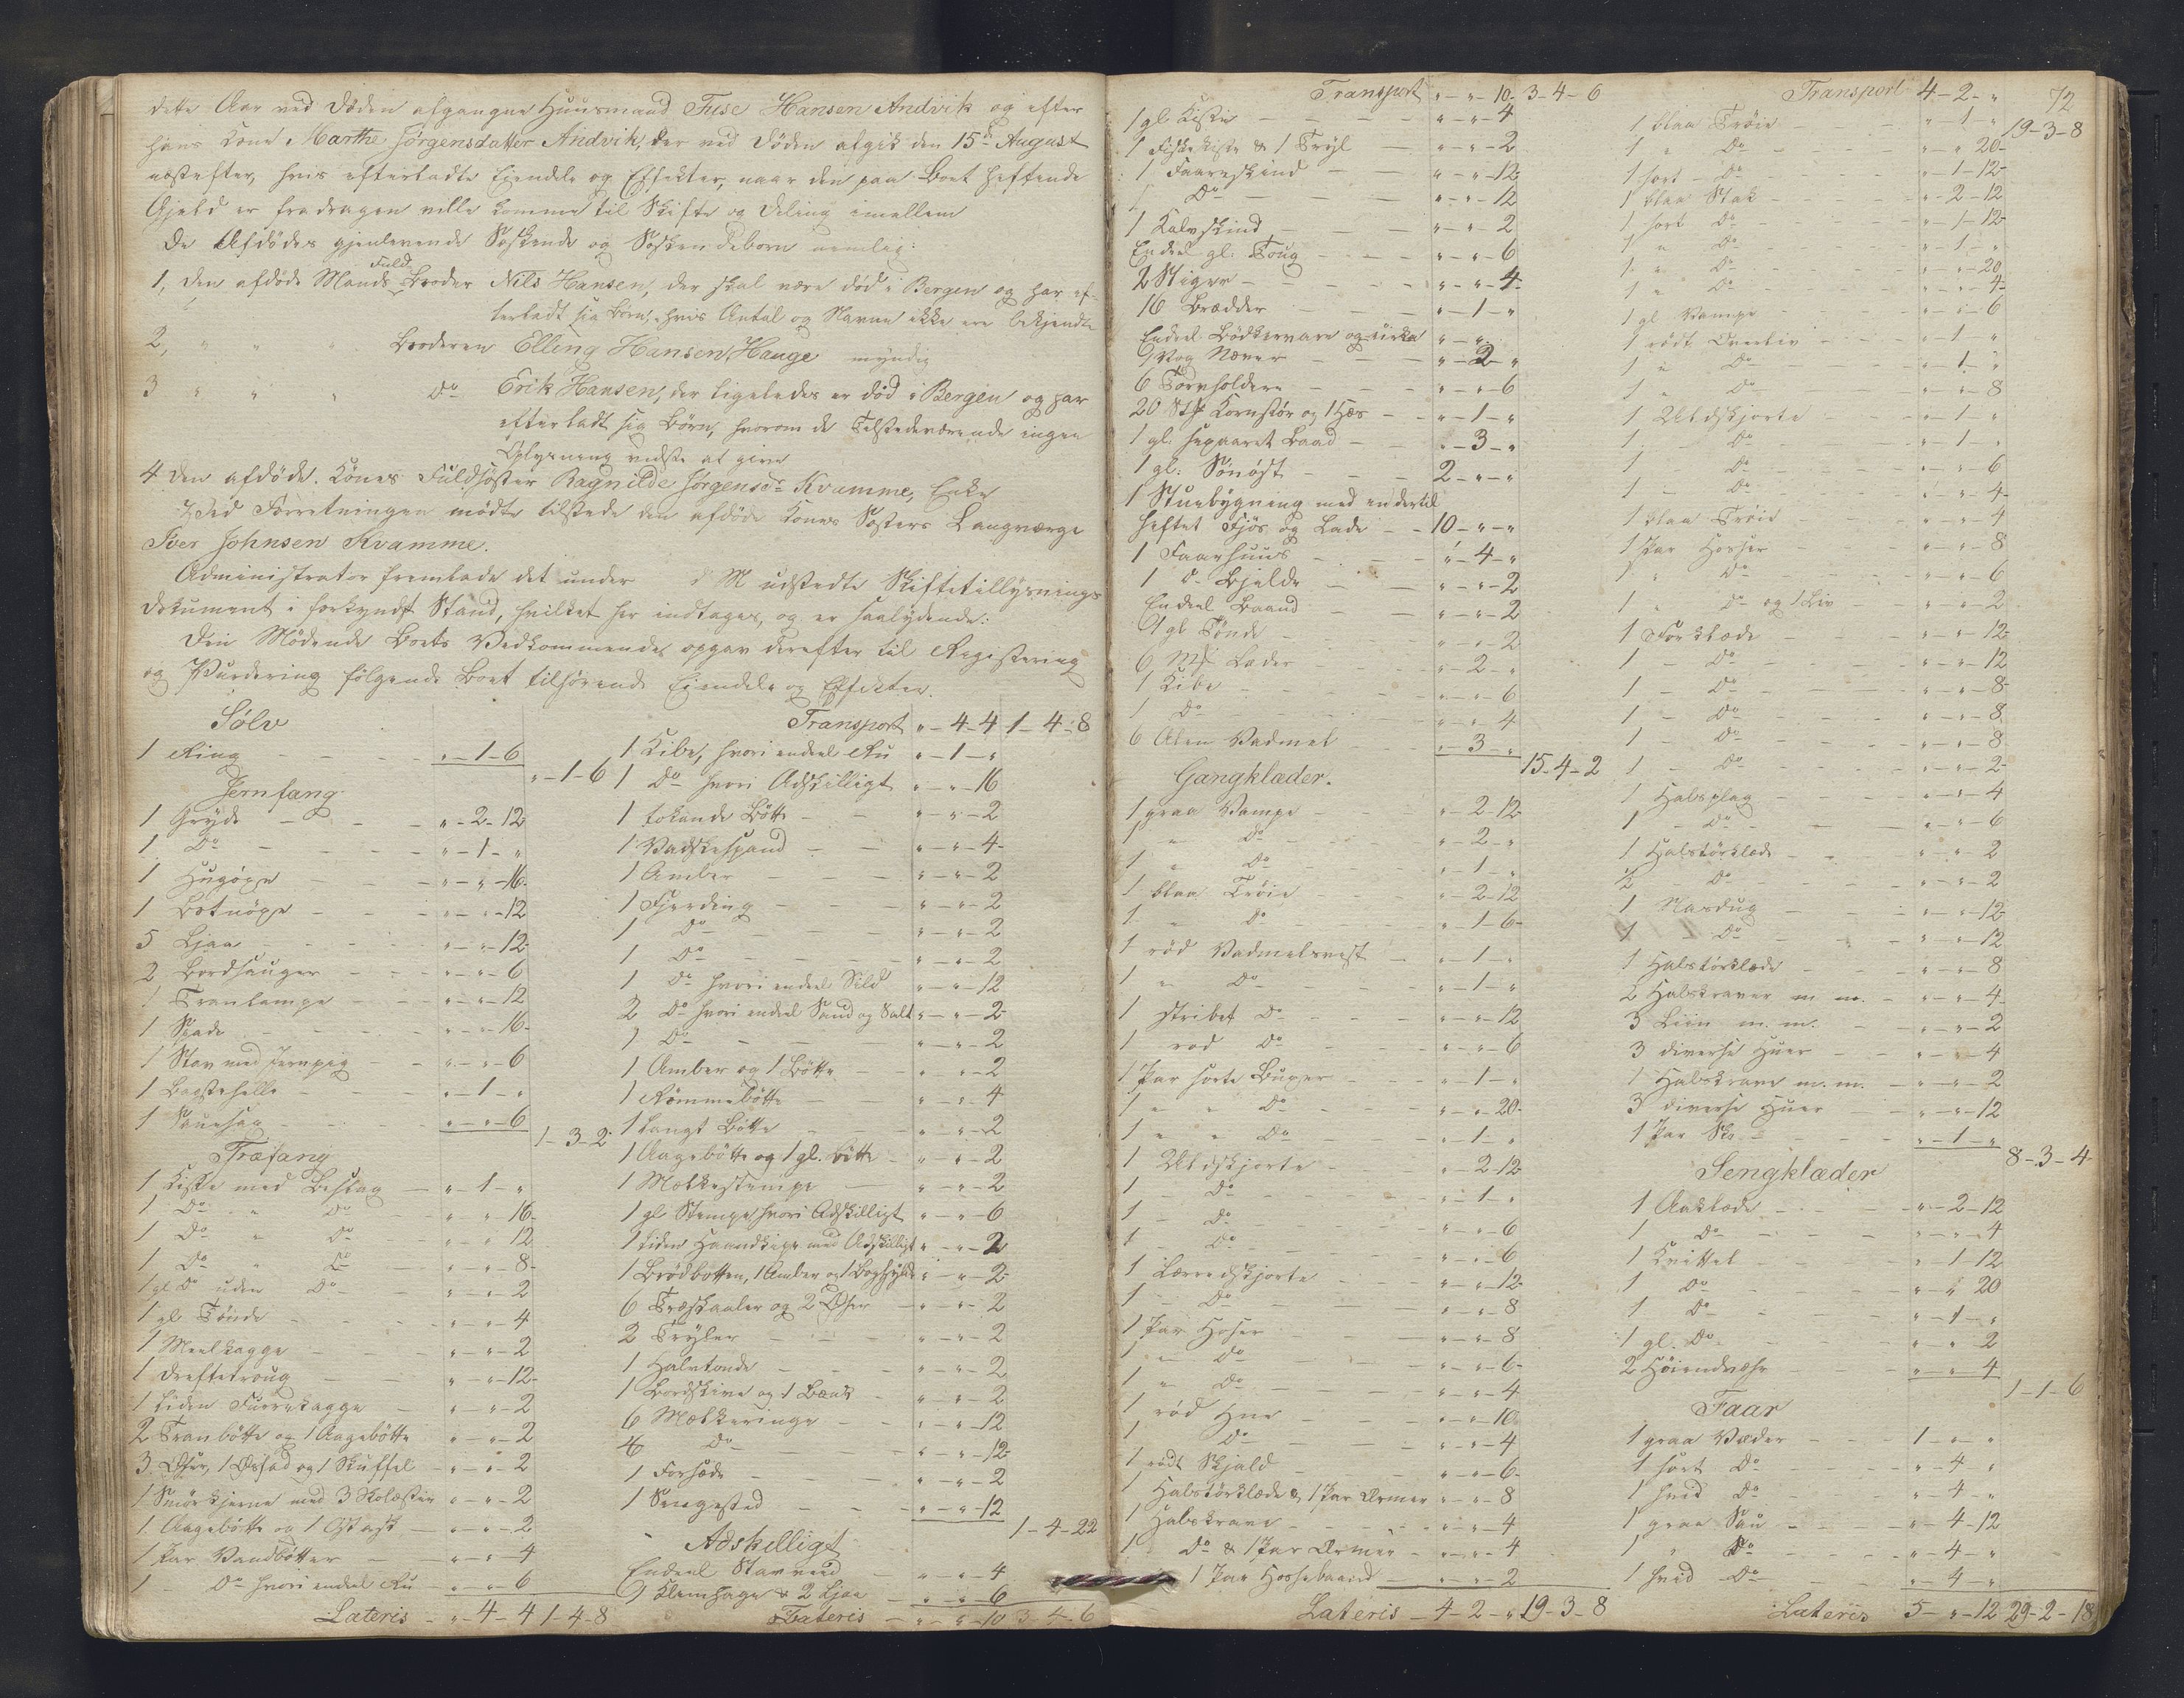 dette Aar ved Døden afgangne Huusmand Tuse Hansen Andvik og efter
hans Kone Marthe Jørgensdatter Andvik, der ved Døden afgik den 15de August
næstefter, hvis efterladte Eiendele og Effekter, naar den paa Boet heftende
Gjeld er fradragen ville komme til Skifte og Deling imellem
De Afdødes gjenlevende Søskende og Søskendebørn nemlig:
1, den afdøde Mands Fuld Broder Nils Hansen, der skal være død i Bergen og har ef-
terladt sig Børn, hvis Antal og Navne ikke ere bekjendte
2, " " " Broderen Elling Hansen Hauge myndig
3 " " " Do Erik Hansen, der ligeledes er død i Bergen og har
efterladt sig Børn, hvorom de Tilstedeværende ingen
Oplysning vidste at give
4 den afdøde Kones Fuldsøster Ragnilde Jørgensdr Kvamme, Enke
Ved Forretningen mødte tilstede den afdøde Kones Søsters Laugværge
Iver Johnsen Kvamme.
Administrator fremlagde det under d M udstedte Skiftetillysnings
Dokument i forkyndt Stand, hvilket her indtages, og er saalydende:
Den Mødende Boets Vedkommende opgav derefter til Registering
og Vurdering følgende Boet tilhørende Eiendele og Effekter.
Sølv
1 Ring " - 1 - 6
" - 1 - 6
Jernfang
1 Gryde " - 2 - 12
1 Do " - 1 - "
1 Hugøxe " - " - 16
1 Botnøxe " - " - 12
5 Ljaa " - " - 12
2 Bordsauger " - " - 6
1 Tranlampe " - " - 12
1 Spade " - " - 16
1 Stav med Jernpig " - " - 6
1 Bagstehelle " - 1 - "
1 Sauesax " - " - 6
1 - 3 - 2
Træfang
1 Kiste med Beslag " - 1 - "
1 Do " Do " " 16
1 Do " Do " " 12
1 Do " Do " - " - 8
1 gl Do uden Do " - " - 2
1 gl Tønde " - " - 4
1 Meelkagge " - " - 2
1 Drøftetroug " - " - 12
1 liden Furrekagge " - " - 2
2 Tranbøtte og 1 Aagebøtte " - " - 2
3 Øser, 1 Ørsad og 1 Skuffel " - " - 2
1 Smørkjerne med 3 " - " - 2
1 Aagebøtte og 1 " - " - 2
1 Par Vandbøtter " - " - 4
1 Do hvori endeel Ru " - " - 6
Lateris " - 4 - 4 1 - 4 - 8
Transport " - 4 - 4 1 - 4 - 8
1 Kibe, hvori endeel Ru " - 1 - "
1 Do hvori Adskilligt " - " - 16
1 Bøtte " - " - 2
1 Vadskespand " - " - 4
1 Amber " - " - 2
1 Fjerding " - " - 2
1 Do " - " - 2
1 Do " - " - 2
1 Do hvori endeel Sild " - " - 12
2 Do hvori endeel Sand og Salt " - " - 2
1 Do " - " - 2
1 Amber og 1 Bøtte " - " - 2
1 Rømmebøtte " - " - 4
1 langt Bøtte " - " - 2
1 Aagebøtte og 1 gl. bøtte " - " - 2
1 Melkestempe " - " - 2
1 gl Stempe hvori Adskilligt " - " - 6
1 liden Haandkipe med Adskilligt " - " - 2
1 Brødbotten, 1 Amber og 1 Boghylde " - " - 2
6 Træskaaler og 2 Øser " - " - 2
2 Tryler " - " - 2
1 Halvtønde " - " - 2
1 Bordskive og 1 Bænk " - " - 2
6 Melkeringe " - " - 12
6 Do " - " - 12
1 Forsæde " - " - 2
1 Sengested " - " - 12
1 - 4 - 22
Adskelligt
Endeel Stavved " - " - 4
1 Klemhage & 2 Ljaa " - " - 6
Lateris " - " - 10 3 - 4 - 6
Transport " - " - 10 3 - 4 - 6
1 gl Kiste " - " - 4
1 Fiskekiste & 1 Tryl " - " - 2
1 Faareskind " - " - 12
1 Do " - " - 12
1 Kalvskind " - " - 2
Endeel gl. Toug " - " - 6
2 Stiger " - " - 4
16 Brædder " - 1 - "
Endeel Bødkervare og cirka
1 Vog Næver " - 2 - "
6 Tørvholdere " - " - 6
20 Stk Kornstør og 1 Hæs " - 1 - "
1 gl. separeret Baad " - 3 - "
1 gl. Sønøst 2 - " - "
1 Stuebygning med en dertil
heftet Fjøs og Lade 10 - " - "
1 Faarhuus " - 4 - "
1 Do Bjelde " - " - 2
Endeel Baand " - " - 2
1 gl Tønde " - " - 2
6 Mk Læder " - 2 - "
1 Kibe " - " - 6
1 Do " - " - 4
6 Alen Vadmel " - 3 - "
15 - 4 - 2
Gangklæder.
1 graa Vampe " - 2 - 12
1 " Do " - 2 - "
1 " Do " - 1 - "
1 blaa Trøie " - 2 - 12
1 " Do " - 1 - 6
1 rød Vadmelsvest " - 1 - "
1 " Do " - 1 - "
1 stribet Do " - " - 12
1 rød Do " - " - 6
1 Par sorte Buxer " - 1 - "
1 " " Do " - " - 20
1 " " Do " - 1 - "
1 Uldskjorte " - 2 - 12
1 Do " - 1 - "
1 Do " - " - 6
1 Do " - " - 6
1 Lærredskjorte " - " - 12
1 Do " - " - 8
1 Par Hoser " - " - 8
1 " Do " - " - 6
1 " Do " - " - 4
1 rød Hue " - " - 10
1 Do " - " - 4
1 rødt Skjold " - " - 6
1 Halstørklæde & 1 Par Ærmer " - " - 8
1 Halskrave " - " - 4
1 Do & 1 Par Ærmer " - " - 4
1 Par Hosebaand " - " - 2
Lateris 4 - 2 - " 19 - 3 - 8
72
Transport 4 - 2 - "
19 - 3 - 8
1 blaa Trøie " - 1 - "
1 " Do " - " 20
1 sort Do " - 1 - 12
1 blaa Stak " - 2 - 12
1 sort Do " - 1 - 12
1 " Do " - 1 - "
1 " Do " - " - 20
1 " Do " - " - 4
1 gl Vampe " - " - 6
1 rødt Overliv " - 1 - "
1 " Do " - 1 - "
1 " Do " - " - 8
1 Uldskjorte " - 1 - "
1 Do " - 1 - "
1 Do " - " - 6
1 Do " - " - 4
1 blaa Trøie " - " - 4
1 Par Hoser " - " - 8
1 " Do " - " - 6
1 " Do og 1 Liv " - " - 2
1 Forklæde " - " - 12
1 Do " - " - 12
1 Do " - " - 8
1 Do " - " - 8
1 Do " - " - 8
1 Do " - " - 2
1 Halsplag " - " - 4
1 Do " - " - 6
1 Halstørklæde " - " - 2
2 Do " - " - 2
1 Nasdug " - " - 12
1 Do " - " - 12
1 Halstørklæde " - " - 8
2 Halskraver m. m. " - " - 4
3 Liin m. m. " - " - 2
3 diverse Huer " - " - 4
1 Halskrave m. m. " - " - 2
3 diverse Huer " - " - 12
1 Par Sko " - 1 - "
8 - 3 - 4
Sengklæder
1 Aaklæde " - 2 - 12
1 Do " - " - 4
1 Knittel " - 1 - 12
1 Do " - " 20
1 Do " - 1 - "
1 gl. Do " - " 2
2 Høiendvahr " - " 4
1 - 1 - 6
Faar
1 graa Væder 1 - " - "
1 sort Do " - 4 - "
1 hvid Do " - 4 - "
1 graa Sau " - 4 - 12
1 " Do " - 4 - "
1 hvid Do " - 4 - "
Lateris 5 - " - 12 29 - 2 - 18